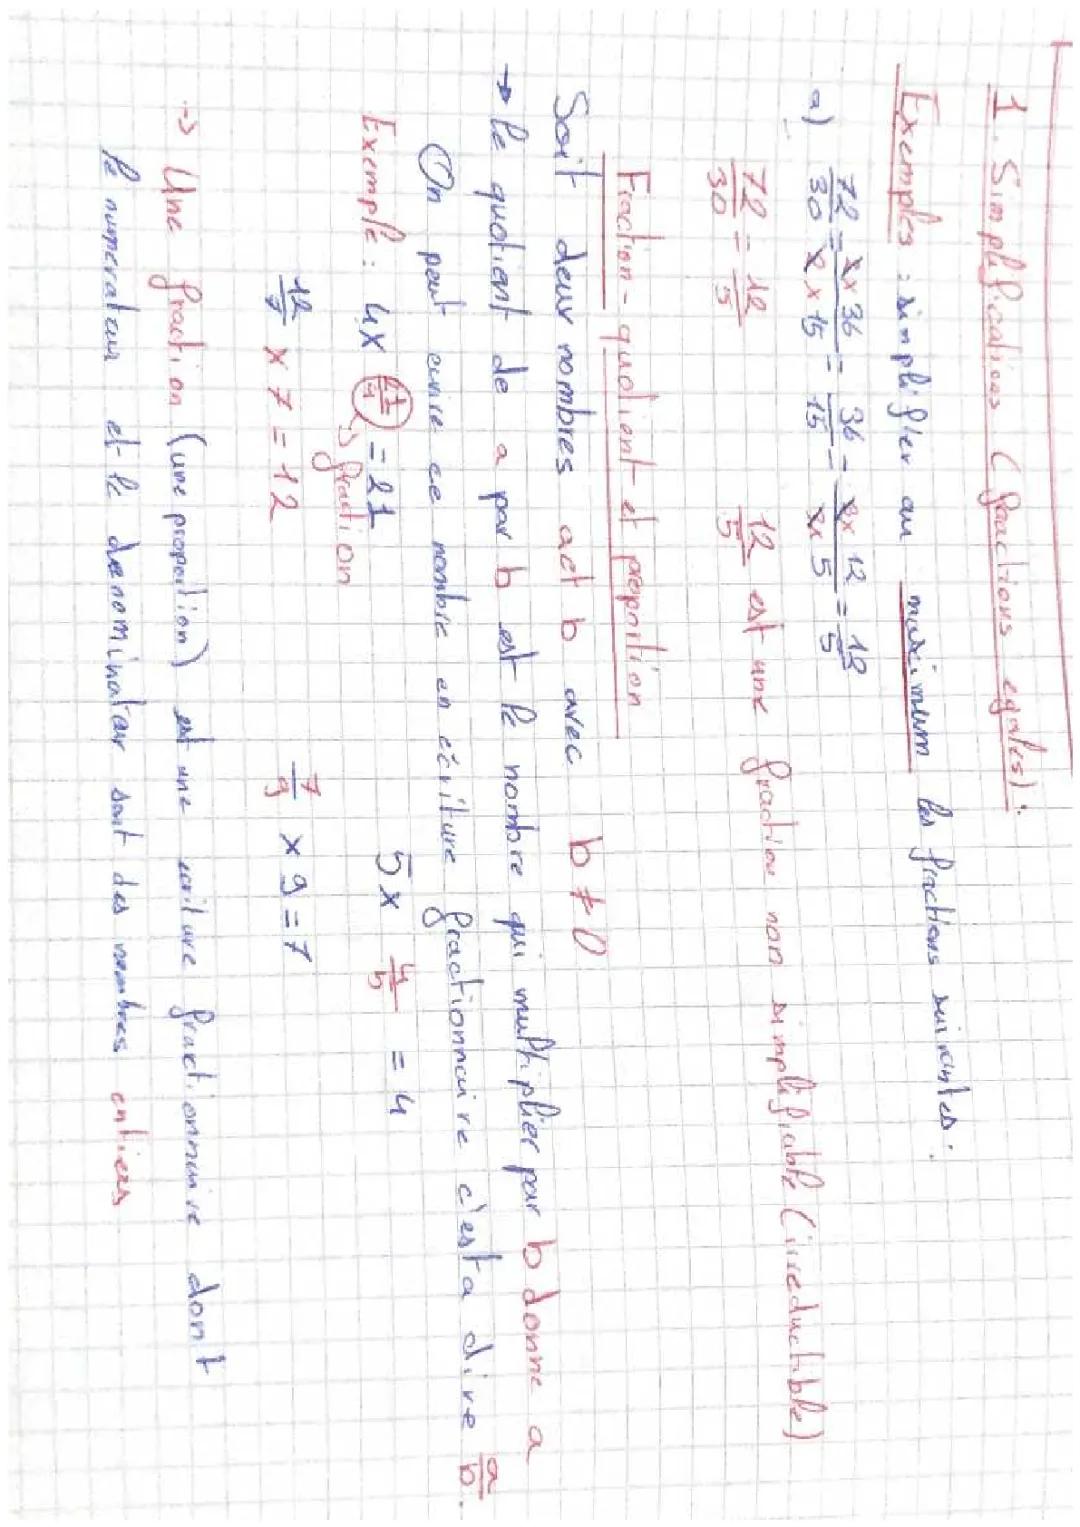 1. Simplifications (fractions egales):
Exemples : simplifier au maximum les fractions suivantes:
a) 72/30 = 2x36/2x15 = 36/15 = 3x12/3x5 = 12/5
72/30 = 12/5 12/5 est une fraction non simplifiable (irreductible)
Fraction-quotient et proportion
Soit deux nombres a et b avec b ≠ 0
→ le quotient de a par b est le nombre qui multiplier par b donne a
On peut ecrire ce nombre en écriture fractionnaire c'est a dire a/b.
Exemple: 4x 21/4 = 21 5x 4/5 = 4
→ fraction
12/7 x 7 = 12 7/9 x 9 = 7
→ Une fraction (une proportion) est une ecriture fractionnaire dont
le numerateur et le denominateur sont des nombres entiers